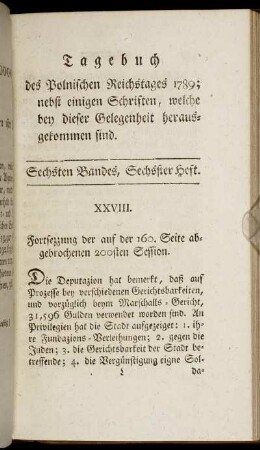 Tagebuch
des Polnischen Reichstages 1789;
nebst einigen Schriften, welche
bey dieser Gelegenheit heraus-
gekommen sind.
Sechsten Bandes, Sechster Heft.
XXVIII.
Fortsezzung der auf der 160. Seite ab-
gebrochenen 200sten Session.
Die Deputazion hat bemerkt, daß auf
Prozesse bey verschiedenen Gerichtsbarkeiten,
und vorzüglich beym Marschalls-Gericht,
31,596 Gulden verwendet worden sind. An
Privilegien hat die Stadt aufgezeiget: 1. ih-
re Fundazions-Verleihungen; 2. gegen die
Juden; 3. die Gerichtsbarkeit der Stadt be-
treffende; 4. die Vergünstigung eigne Sol-
da-